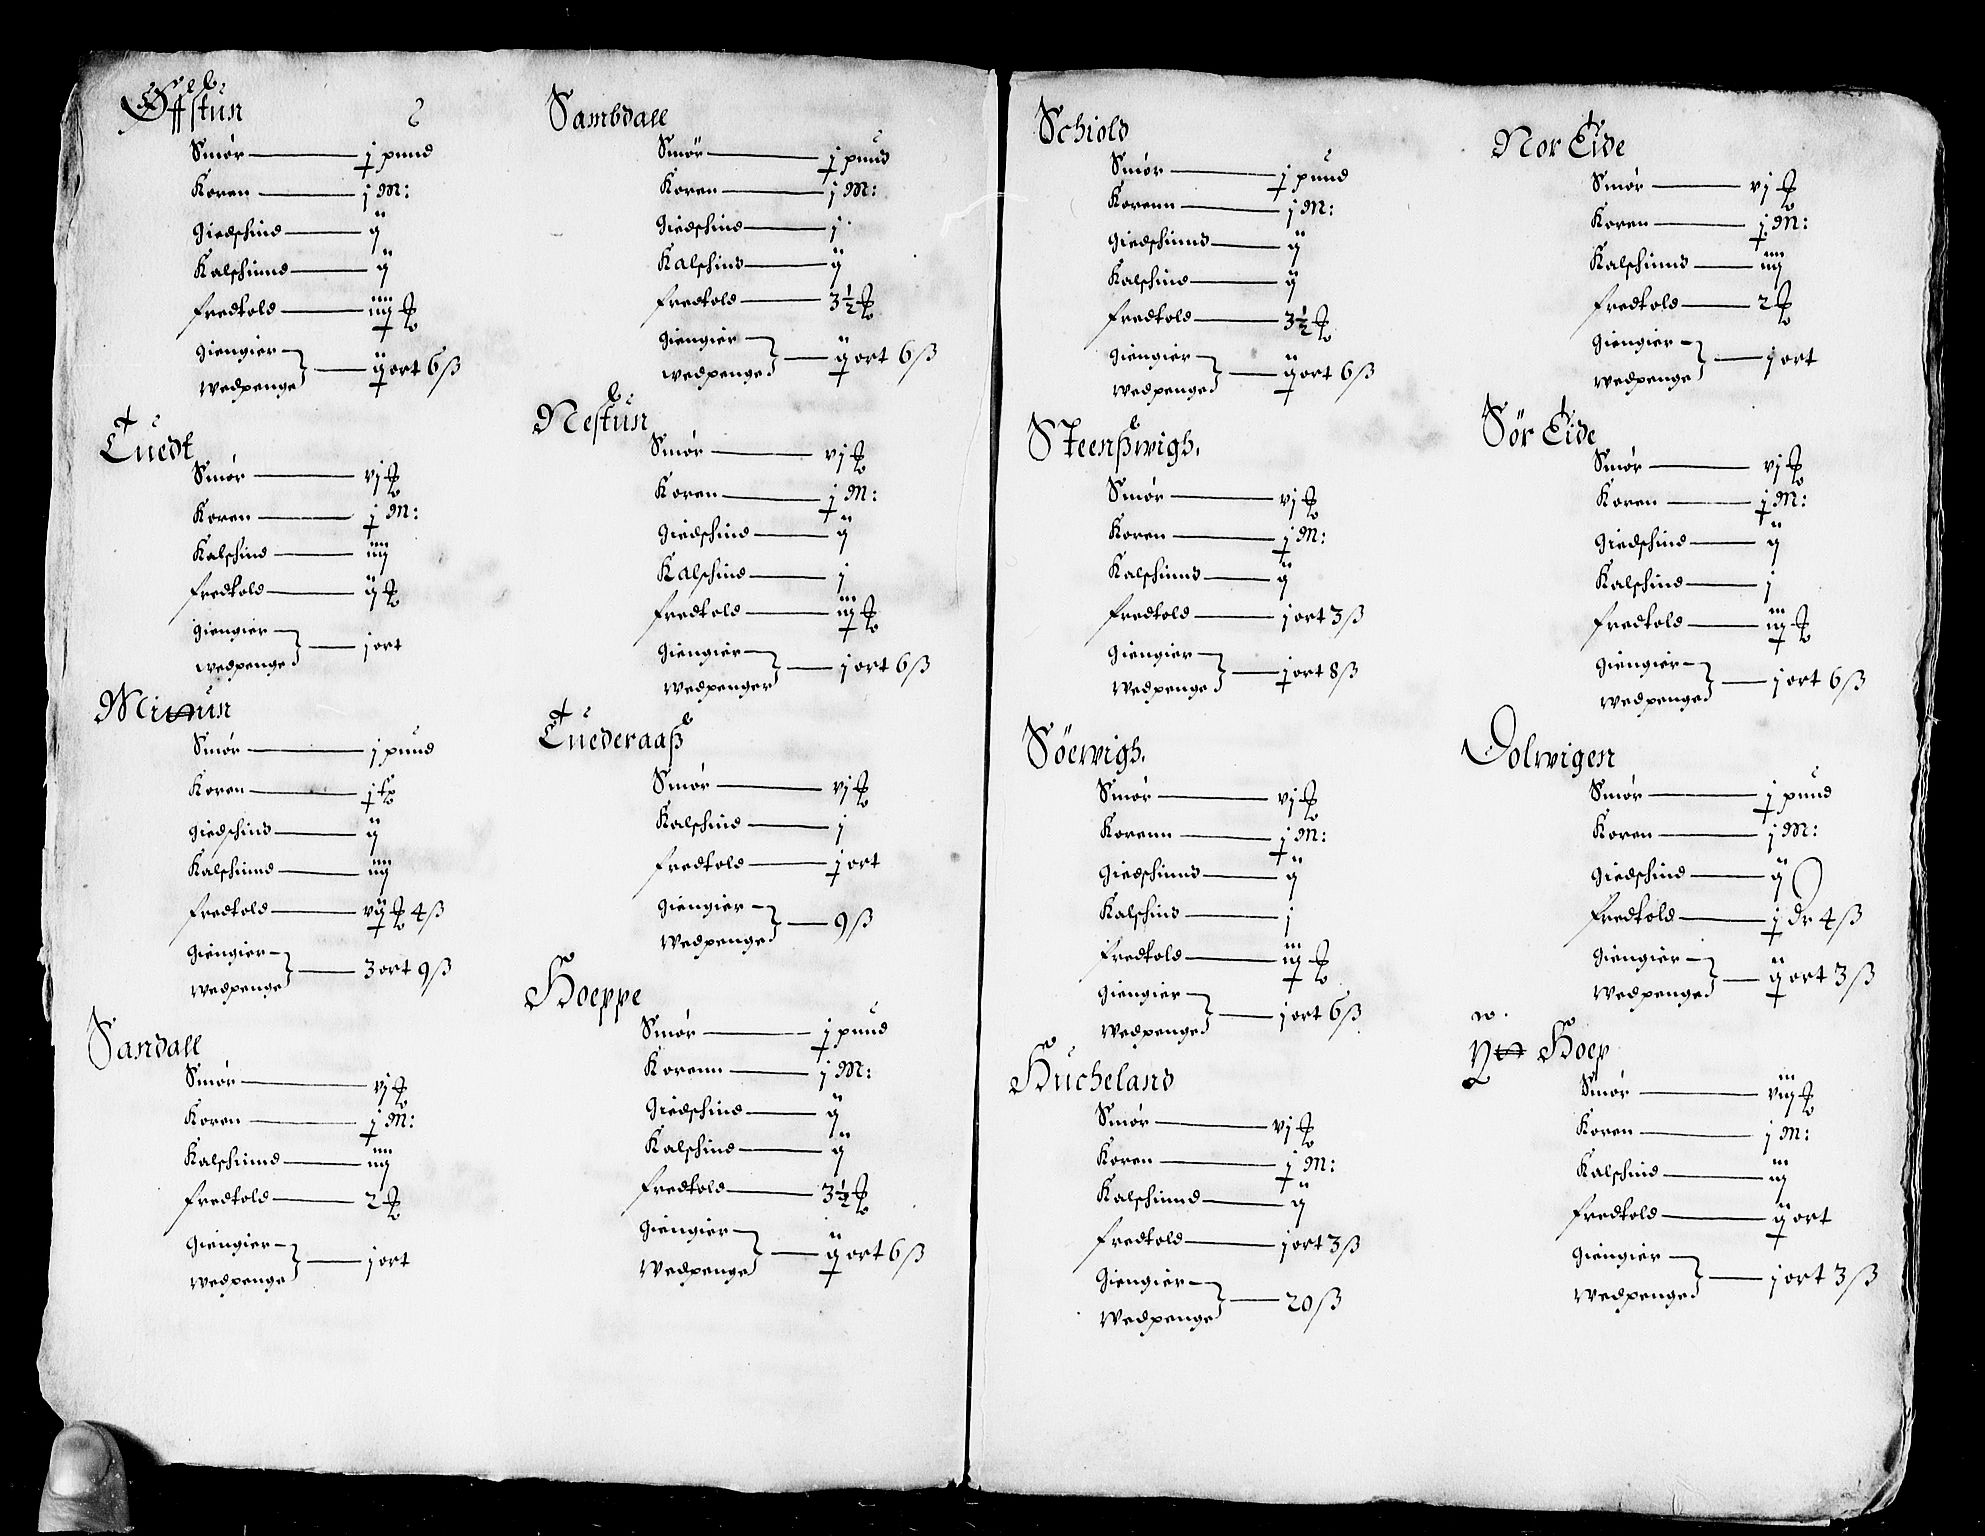 Øfstun
Smør j pund
Koren j M:
Giedschind ij
Kalschinnd ij
fredtold iiij
Giengier
wedpenge ij ort 6 ß
Tuedt
Smør vj
Koren j M:
Kalschind iiij
fredtold ij
Giengier
wedpenge j ort
Smør j pund
Koren j
Giedschind ij
Kalschinnd iiij
fredtold vij 4 ß
Giengier
wedpenge 3 ort 9 ß
Sandall
Smør vj
Koren j M:
Kalschinnd iiij
fredtold 2
Giengier
wedpenge j ort
Sambdall
Smør j pund
Koren j M:
Giedschind j
Kalschind ij
fredtold 3½
Giengier
wedpenge ij ort 6 ß
Nestun
Smør vj
Koren j M:
Giedschind ij
Kalschind j
fredtold iij
Giengier
wedpenger j ort 6 ß
Tuederaaß
Smør vj
Kalschind j
fredtold j ort
Giengier
wedpenge 9 ß
Hoeppe
Smør j pund
Korenn j M:
Giedschind ij
Kalschind ij
fredtold 3½
Giengier
wedpenge ij ort 6 ß
Schiold
Smør j pund
Korenn j M:
Giedschinnd ij
Kalschind ij
fredtold 3½
Giengier
wedpenge ij ort 6 ß
Steenßwigh.
Smør vj
Koren j M:
Kalschinnd ij
fredtold j ort 3 ß
Giengier
wedpenge j ort 8 ß
Söewigh.
Smør vj
Korenn j M:
Giedschinnd ij
Kalschind j
fredtold iij
Giengier
wedpenge j ort 6 ß
Hucheland
Smør vj
Koren j M:
Kalschinnd ij
fredtold j ort 3 ß
Giengier
wedpenge 20 ß
Nor Eide
Smør vj
Koren j M:
Kalschinnd iiij
fredtold 2
Giengier
wedpenge j ort
Sör Eide
Smør vj
Koren j M:
Giedschind ij
Kalschind j
fredtold iij
Giengier
wedpenge j ort 6 ß
Dolwigen
Smør j pund
Koren j M:
Giedschind ij
fredtold j Dr 4 ß
Giengier
wedpenge ij ort 3 ß
Hoep
Smør viij
Koren j M:
Kalschind iij
fredtold ij ort
Giengier
wedpenge j ort 3 ß